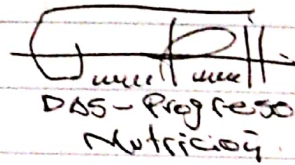 DAS-Progreso
Nutrición